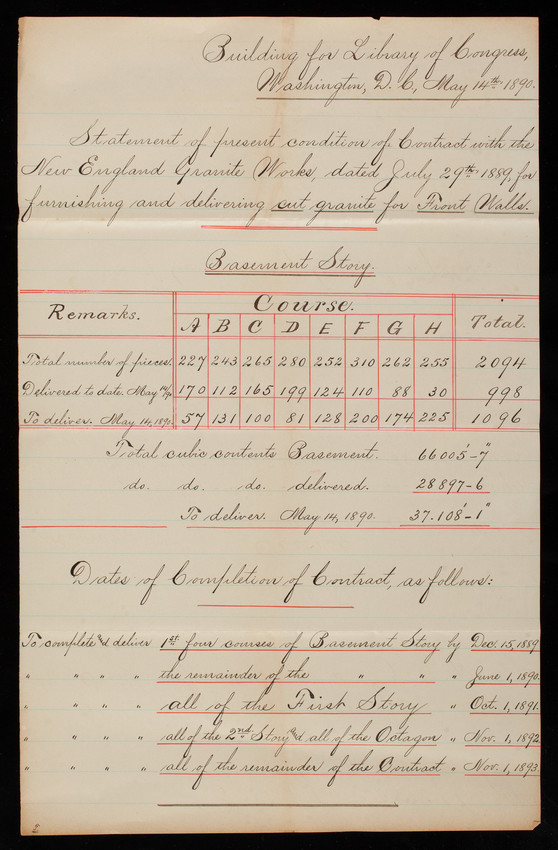 Building for Library of Congress,
Washington, D. C., May 14th 1890.
Statement of present condition of Contract with the
New England Granite Works, dated July 29th 1889, for
furnishing and delivering cut granite for Front Walls.
Basement Story.
Remarks. Course. Total.
A B C D E F G H
Total number of pieces. 227 243 265 280 252 310 262 255 2094
Delivered to date. May 14/90 170 112 165 199 124 110 88 30 998
To deliver. May 14, 1890. 57 131 100 81 128 200 174 225 1096
Total cubic contents Basement. 66005'-7"
do. do. do. delivered. 28897-6
To deliver. May 14, 1890. 37.108'-1"
Dates of Completion of Contract, as follows:
To complete & deliver 1st four courses of Basement Story by Dec. 15, 1889
" " " " the remainder of the " " " June 1, 1890.
" " " " all of the First Story " Oct. 1, 1891.
" " " " all of the 2nd Story & all of the Octagon " Nov. 1, 1892.
" " " " all of the remainder of the Contract " Nov. 1, 1893.
2